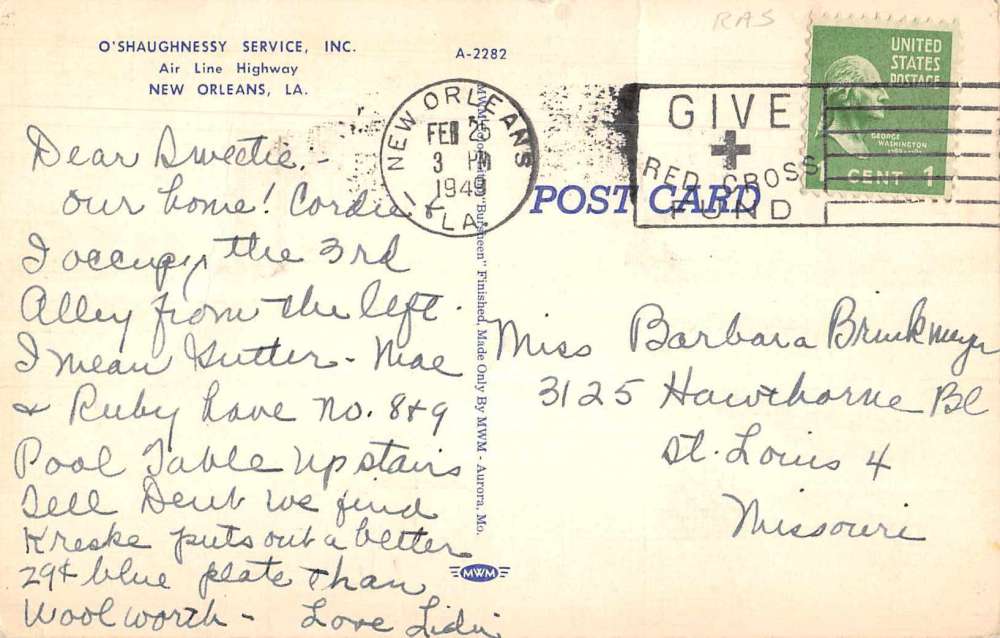 RAS
O'SHAUGHNESSY SERVICE, INC.
Air Line Highway
NEW ORLEANS, LA.
A-2282
NEW ORLEANS
FEB 25
3 PM
1949
LA.
GIVE
RED CROSS
FUND
UNITED
STATES
POSTAGE
GEORGE
WASHINGTON
CENT 1
POST CARD
Dear Sweetie:-
Our home! Cordie &
I occupy the 3rd
Alley from the left.
I mean Gutter - Mae
& Ruby have no. 8+9
Pool Table upstairs
Tell we find
Kreske puts out a better
29¢ blue plate than
Woolworth - Love
Miss Barbara Brinkmeyer
3125 Hawthorne Bl
St. Louis 4
Missouri
"Bursheen" Finished, Made Only By MWM - Aurora, Mo.
MWM